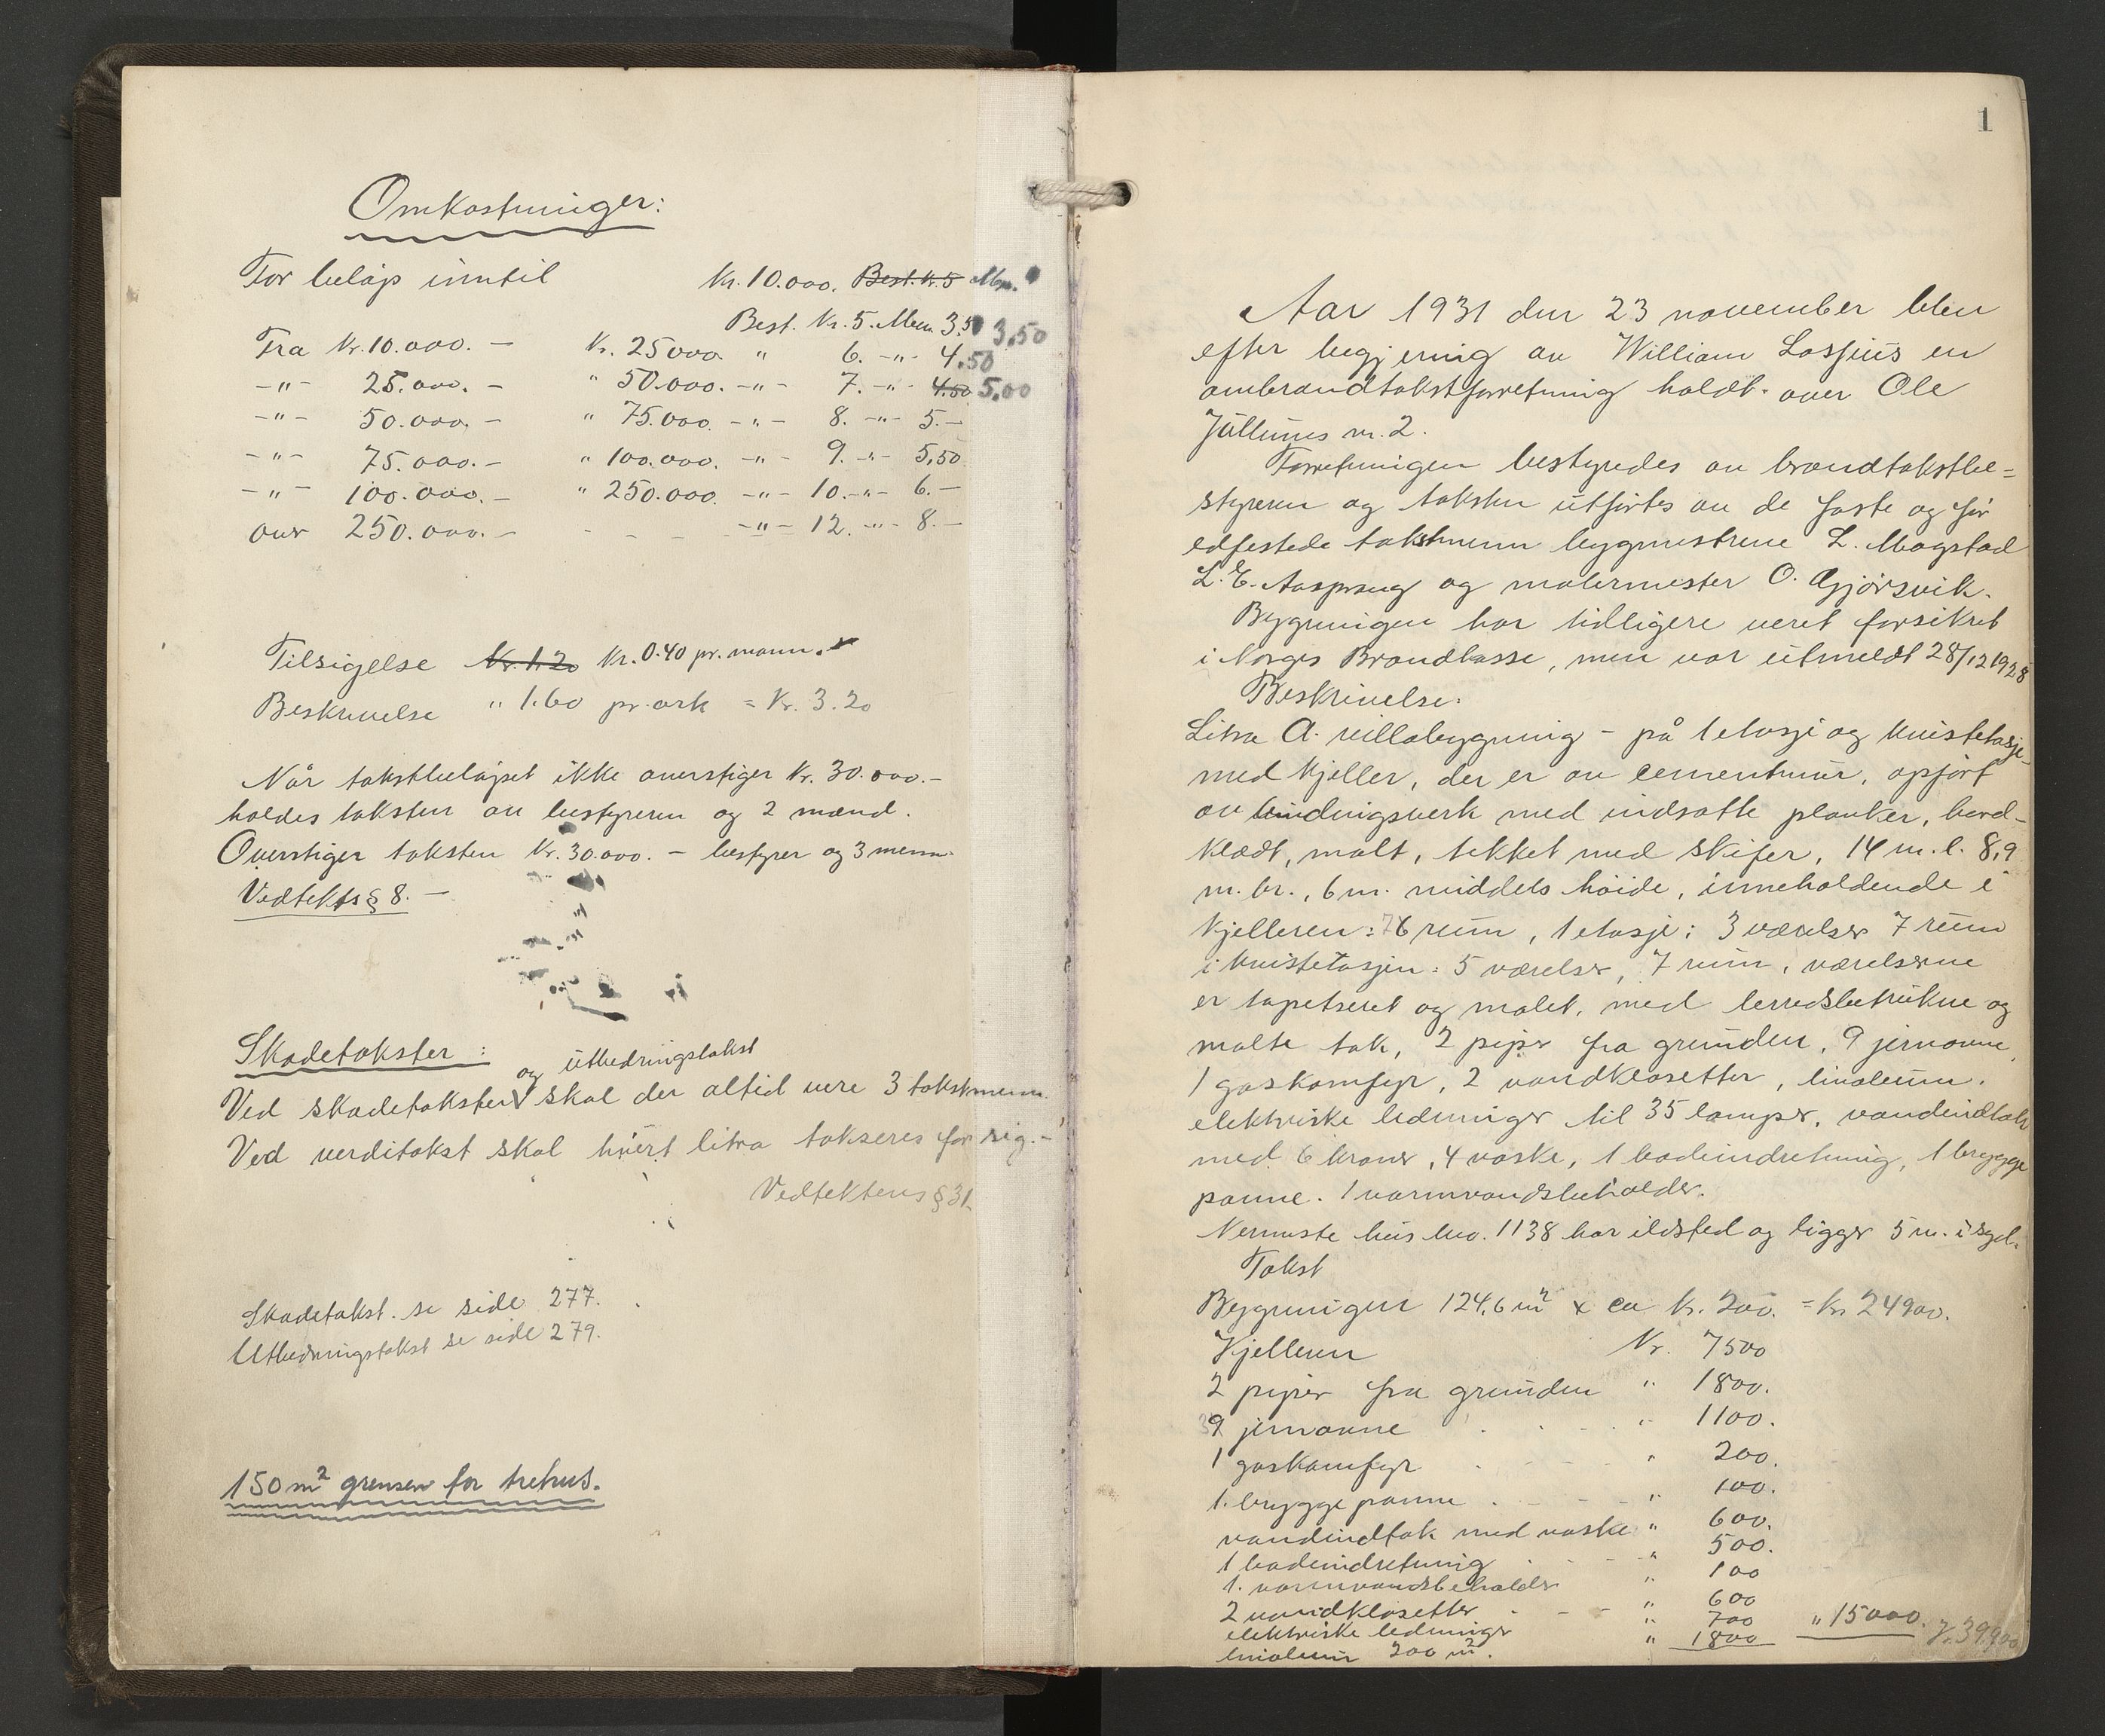 Omkostninger:
For beløp inntil Kr. 10.000. Best. Kr. 5 Men.
Best. Kr. 5. Men 3.50 3,50
Fra Kr. 10.000. — Kr. 25000. " 6. -"- 4.50
-"- 25.000. — " 50.000. -"- 7. -"- 4.50 5,00
-"- 50.000. — " 75.000. -"- 8. -"- 5.—
-"- 75.000. — " 100.000. -"- 9. -"- 5,50
-"- 100.000. — " 250.000. -"- 10. -"- 6.—
over 250.000. — -"- 12. -"- 8.—
Tilsigelse Kr. 1.20 Kr. 0.40 pr. mann.
Beskrivelse " 1.60 pr. ark = Kr. 3.20
Når takstbeløpet ikke overstiger Kr. 30.000.—
holdes taksten av bestyreren og 2 mænd.
Overstiger taksten Kr. 30.000. — bestyrer og 3 menn.
Vedtekts § 8. —
Skadetakster:
og utbedringstakst
Ved skadetakster skal der altid være 3 takstmenn.
Ved verditakst skal hvert litra takseres for sig.—
Vedtektens § 31
Skadetakst. se side 277.
Utbedringstakst se side 279.
150 m² grensen for trehus.
1
Aar 1931 den 23 november blev
efter begjering av William Lossius en
ombrandtakstforretning holdt over Ole
Jullums vn. 2.
Forretningen bestyredes av brandtakstbe=
styreren og taksten utførtes av de faste og før
edfestede takstmenn bygmestrene L. Magstad
L. E. Aasprang og malermester O. Gjørsvik.
Bygningen har tidligere veret forsikret
i Norges Brandkasse, men var utmeldt 28/12 1928
Beskrivelse.
Litra A. villabygning - på 1 etasje og kvistetasje
med kjeller, der er av cementmur, opført
av bindingsverk med indsatte planker, bord-
klædt, malt, tekket med skifer, 14 m. l. 8,9
m. br., 6 m. middels høide, inneholdende i
kjelleren: 6 rum, 1 etasje: 3 værelser 7 rum
i kvistetasjen: 5 værelser, 7 rum, værelserne
er tapetseret og malet, med lerredsbetrukne og
malte tak, 2 piper fra grunden, 9 jernovne,
1 gaskomfyr, 2 vandklosetter, linoleum.
elektriske ledninger til 35 lamper, vandindtak
med 6 kraner, 4 vaske, 1 badeindretning, 1 brygge
panne. 1 varmvandsbeholder.
Nermeste hus bno. 1138 har ildsted og ligger 5 m. i syd.
Takst
Bygningen 124,6 m² x ca Kr. 200. = Kr. 24900.
Kjelleren Kr. 7500
2 piper fra grunden " 1800.
9 jernovne " 1100.
1 gaskomfyr " 200.
1. bryggepanne " 100.
vandindtak med vaske " 600.
1 badeindretning " 500.
1. varmvandsbeholder " 100
2 vandklosetter " 600
elektriske ledninger " 700 " 15000. Kr. 39,900
linoleum 200 m². " 1800